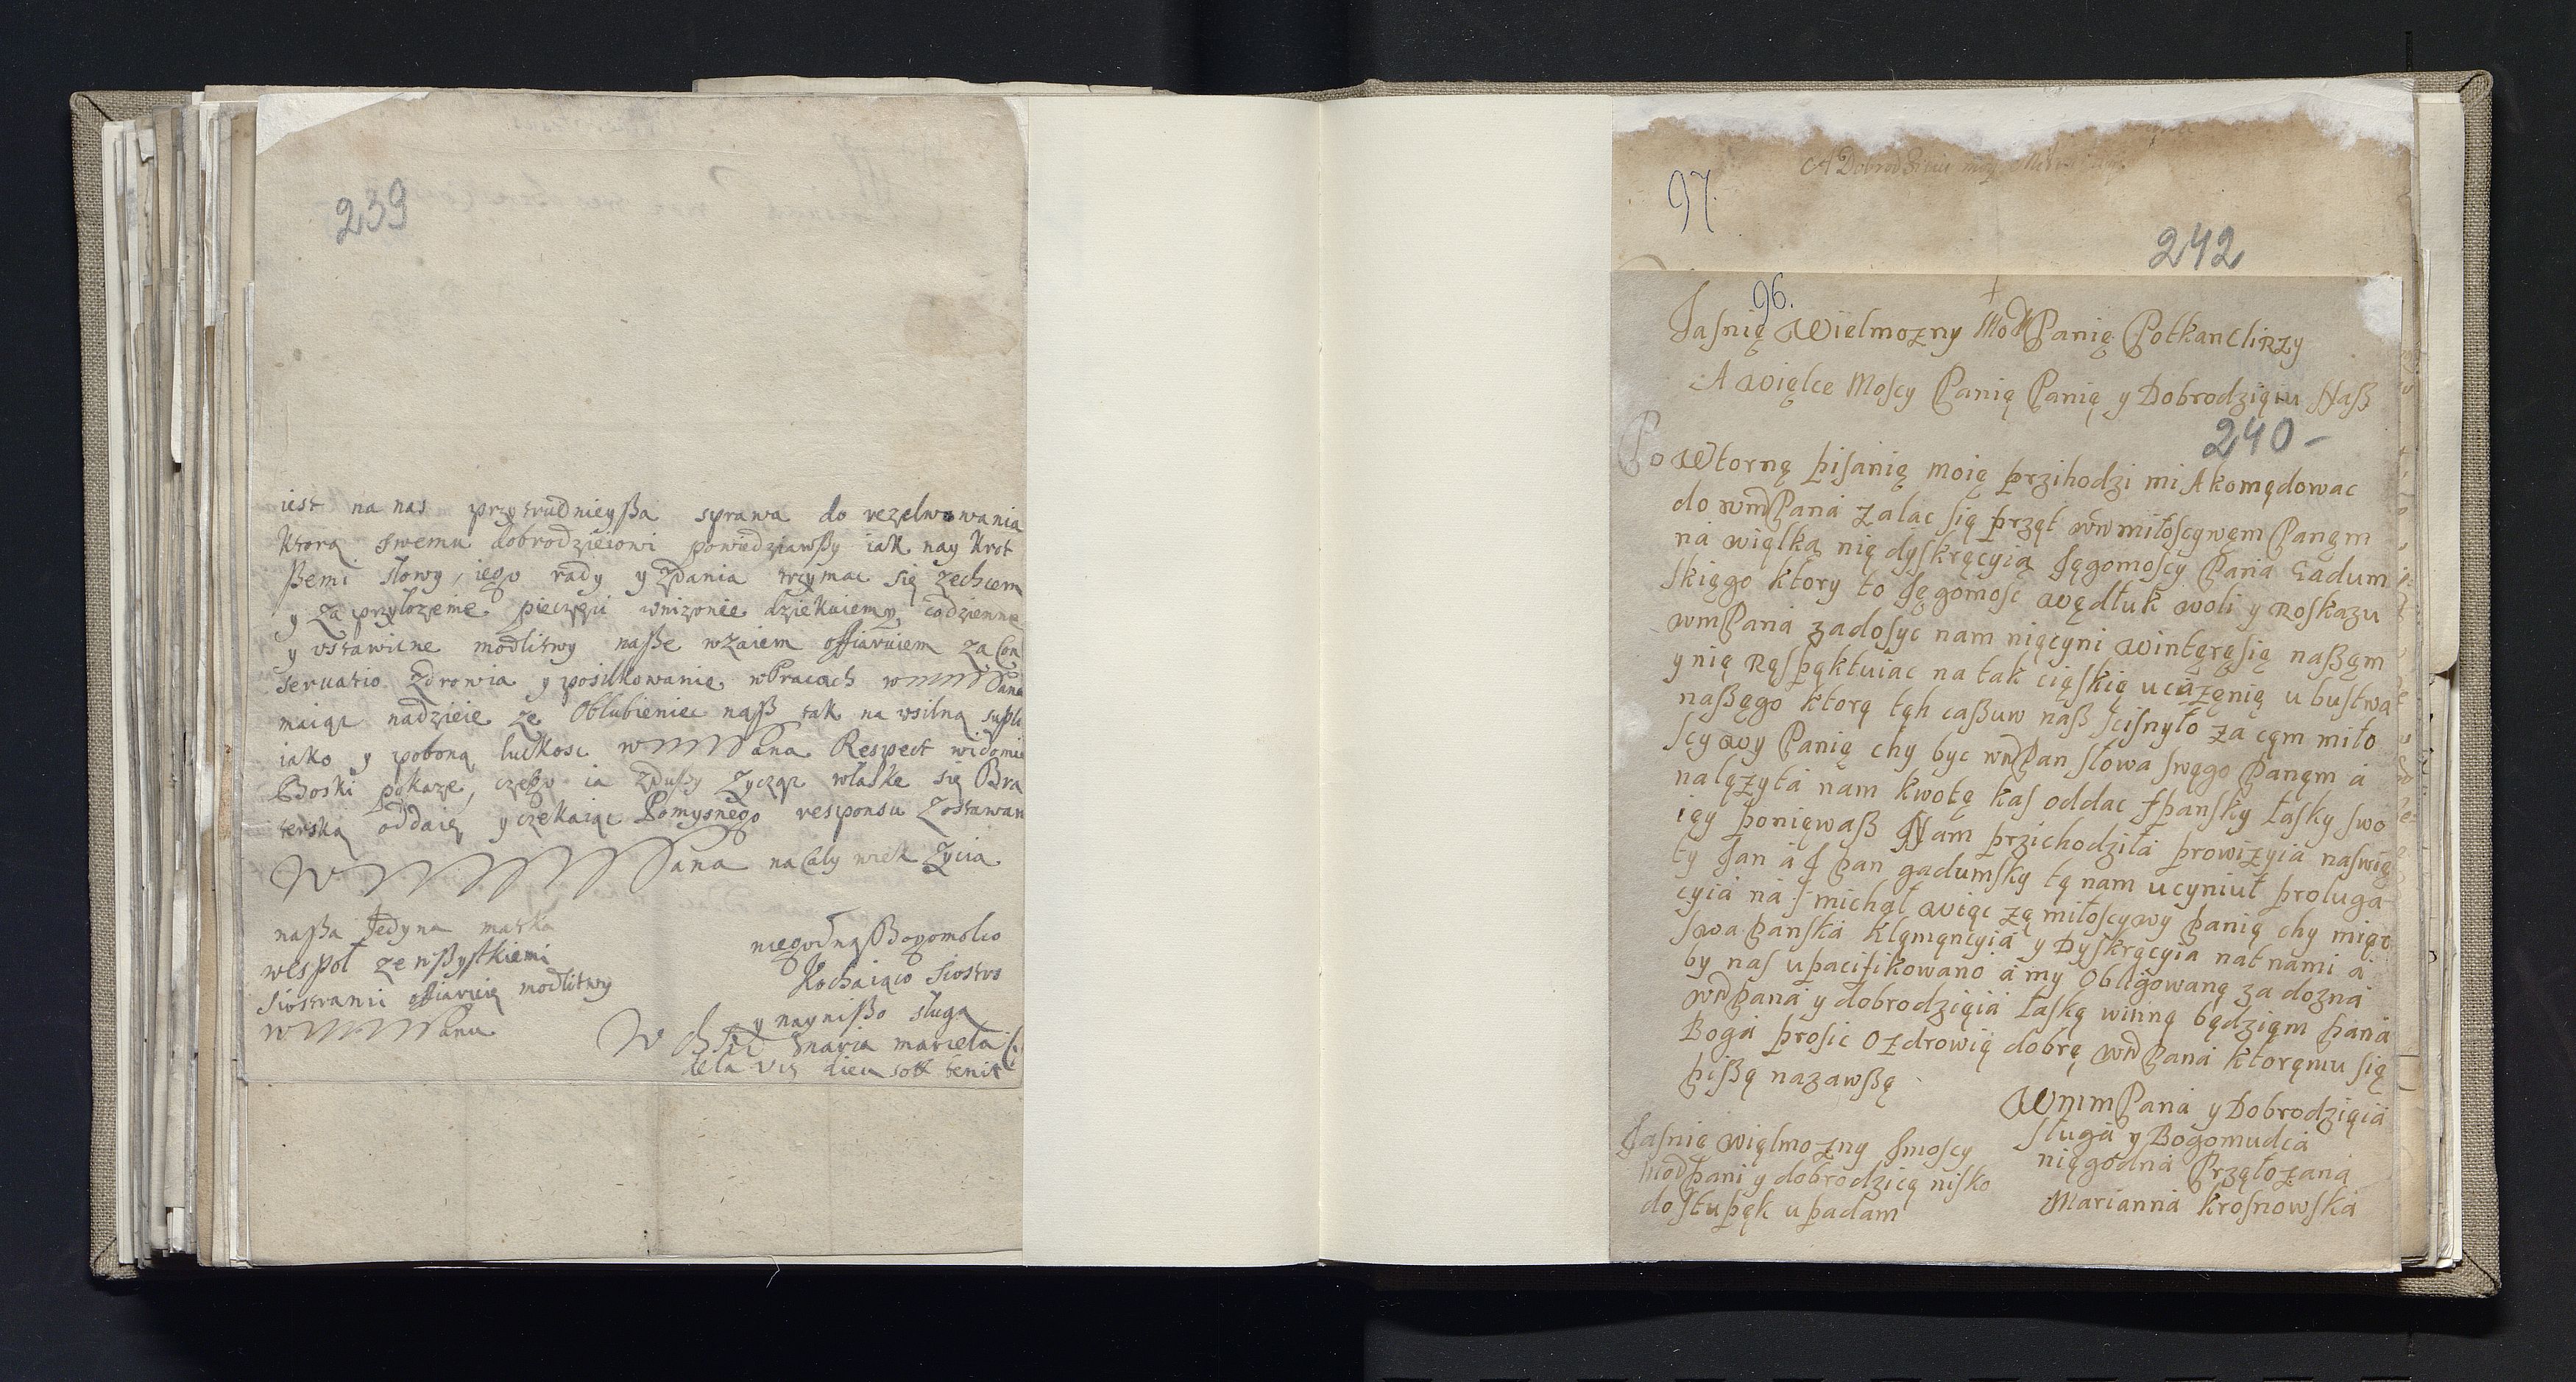 239
iest na nas przytrudnieyßa sprawa do rezelwowania
Ktorą swemu dobrodzieiowi powiedziawßy iak nay krot
ßemi słowy, iego rady y zdania trzymac się zechcem
y za przyłozenie pieczęci unizonie dziekuiemy, codzienne
y vstawicne modlitwy naße wzaiem offiaruiem za Con
seruatio zdrowia y posilkowanie w Pracach wmmPana
maiąc nadzieie ze Oblubieniec naß tak na vsilną supli
iako y poboną ludkosc wmmPana Respect widomie
Boski pokaze, czego ia zdußy zycząc włałke się Bra
terską oddaię y czekaiąc Pomysnego responsu Zostawam
WMMPana na Cały wiek zycia
naßa Jedyna matka
wespoł ze wßystkiemi
siostrami offiaruię modlitwy
wmmPanu
niegodną Bogomolco
Kochaiąco siostro
y naynißo sługa
maria marieta
dela Vis dieu
97.
A Dobrodzieiu moy
242
96.
Jasnię Wielmozny Mod Panię Potkanclirzy
A więlce Moscy Panię Panię y Dobrodzięiu Naß
240-
PoWtornę pisanię moię przihodzi mi Akomędowac
do wmPana zalac się przęt wmmiłoscywęm Panęm
na więlką nię dyskręcyią Jęgomoscy Pana Gadum
skięgo ktory to Jęgomosc wędłuk woli y Roskazu
wmPana zadosyc nam nięcyni wintęręsię naßęm
y nię Ręspęktuiac na tak cięskię uciązęnię ubustwa
naßęgo ktorę tęh caßuw naß scisnyło zacęm miło
scywy Panię chy byc wmPan słowa swęgo Panęm a
nalęzyta nam kwotę kas oddac spansky łasky swo
ięy ponięwaß Nam przichodziła prowizyia naswię
ty Jan a J pan gadumsky tę nam ucyniuł proluga-
cyia na s michał więc zę miłoscywy panię chy mięc
swa panska klęmęncyia y Dyskręcyia nat nami a
by nas upacifikowano a my Obligowanę za dozna
wmPana y dobrodzięia łaskę winnę będzięm pana
Boga prosic o zdrowię dobrę wmPana ktoręmu się
pißę nazawßę
WmmPana y Dobrodzięia
sługa y Bogomudca
nięgodna Przęłozana
Marianna krosnowska
Jasnię więlmozny Jmoscy
Mod pani y dobrodzicę nisko
do stupęk upadam